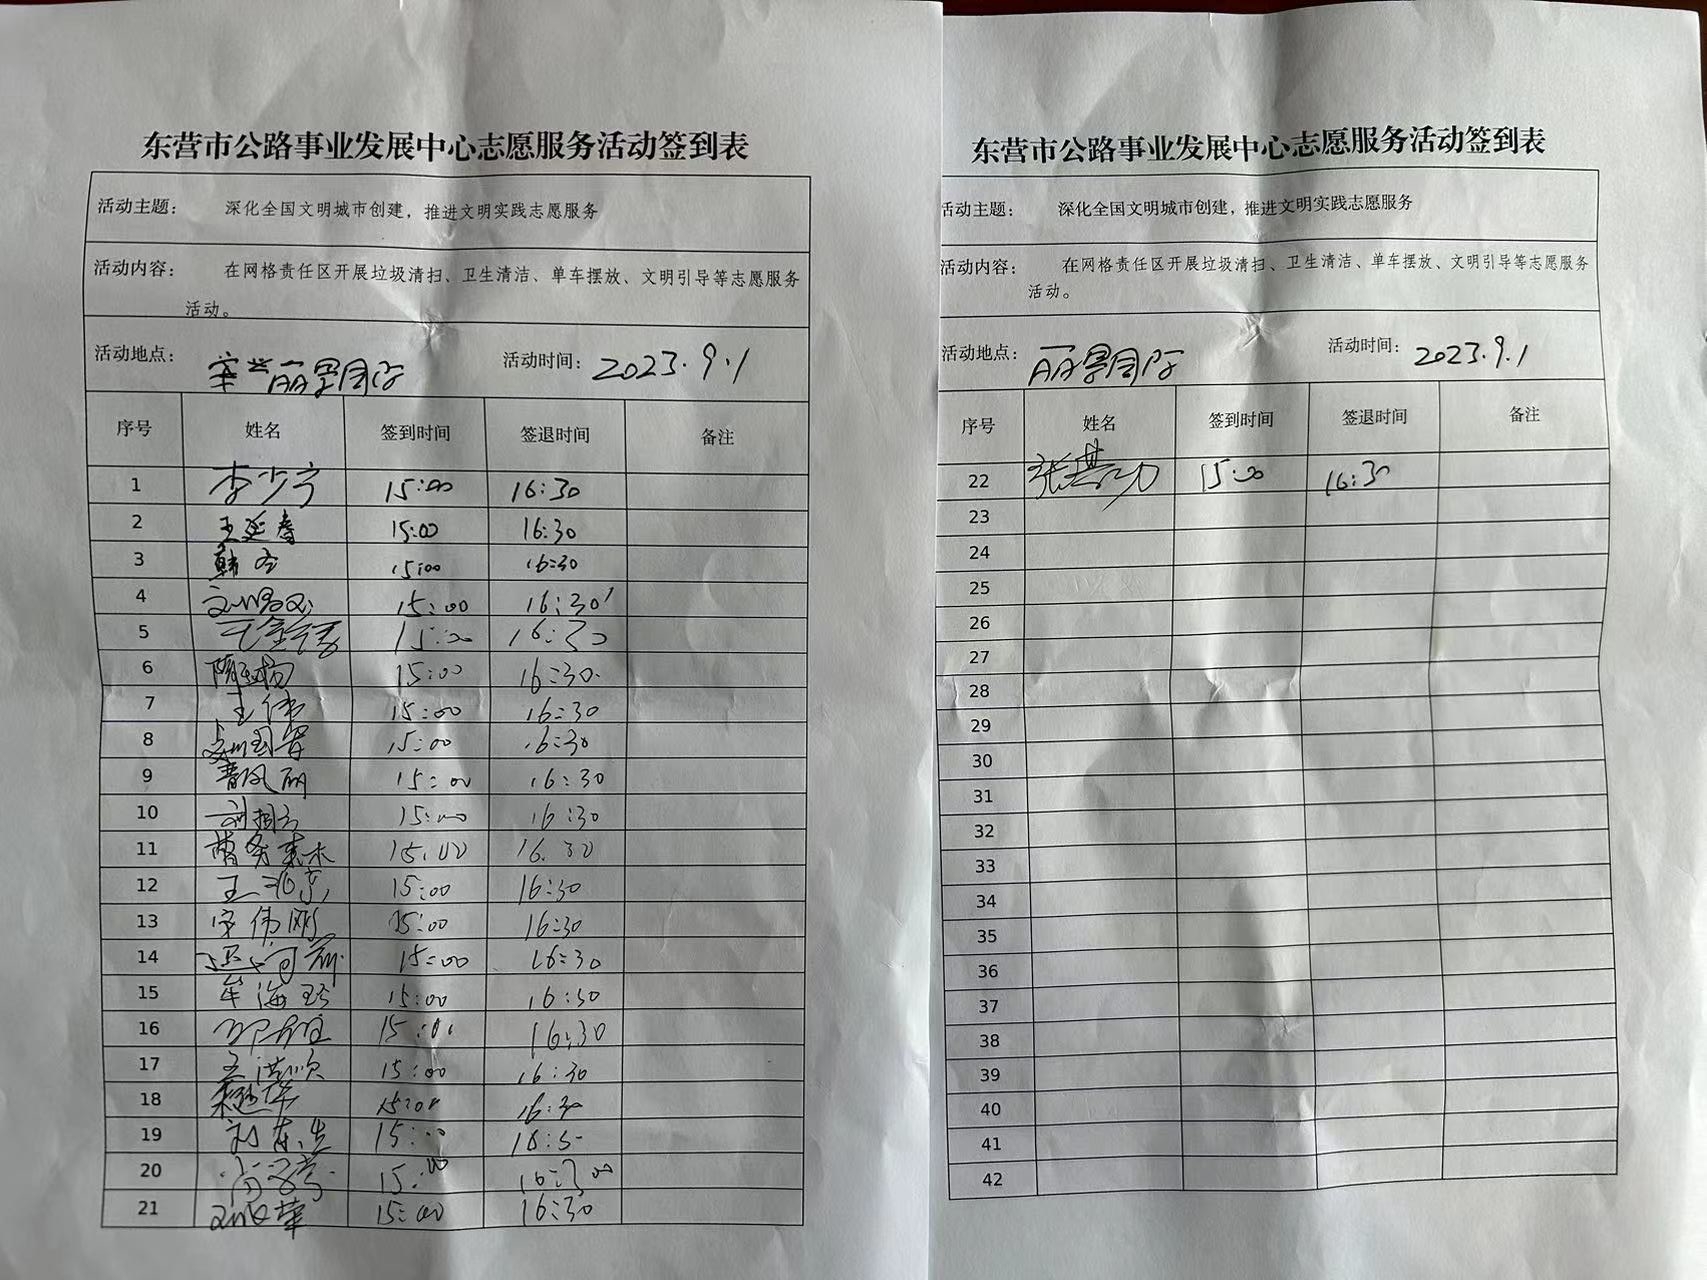 东营市公路事业发展中心志愿服务活动签到表
活动主题： 深化全国文明城市创建，推进文明实践志愿服务
活动内容： 在网格责任区开展垃圾清扫、卫生清洁、单车摆放、文明引导等志愿服务
活动。
活动地点： 丽景国际 活动时间： 2023.9.1
序号 姓名 签到时间 签退时间 备注
1 李少宁 15:00 16:30
2 王延春 15:00 16:30
3 韩 15:00 16:30
4 15:00 16:30
5 15:00 16:30
6 15:00 16:30
7 王伟 15:00 16:30
8 15:00 16:30
9 曹凤丽 15:00 16:30
10 15:00 16:30
11 15.00 16.30
12 15:00 16:30
13 宋伟刚 15:00 16:30
14 15:00 16:30
15 牟海 15:00 16:30
16 15:00 16:30
17 王洪顺 15:00 16:30
18 15:00 16:30
19 15:00
20 15:00
21 15:00 16:30
东营市公路事业发展中心志愿服务活动签到表
活动主题： 深化全国文明城市创建，推进文明实践志愿服务
活动内容： 在网格责任区开展垃圾清扫、卫生清洁、单车摆放、文明引导等志愿服务
活动。
活动地点： 丽景国际 活动时间： 2023.9.1
序号 姓名 签到时间 签退时间 备注
22 15:00 16:30
23
24
25
26
27
28
29
30
31
32
33
34
35
36
37
38
39
40
41
42